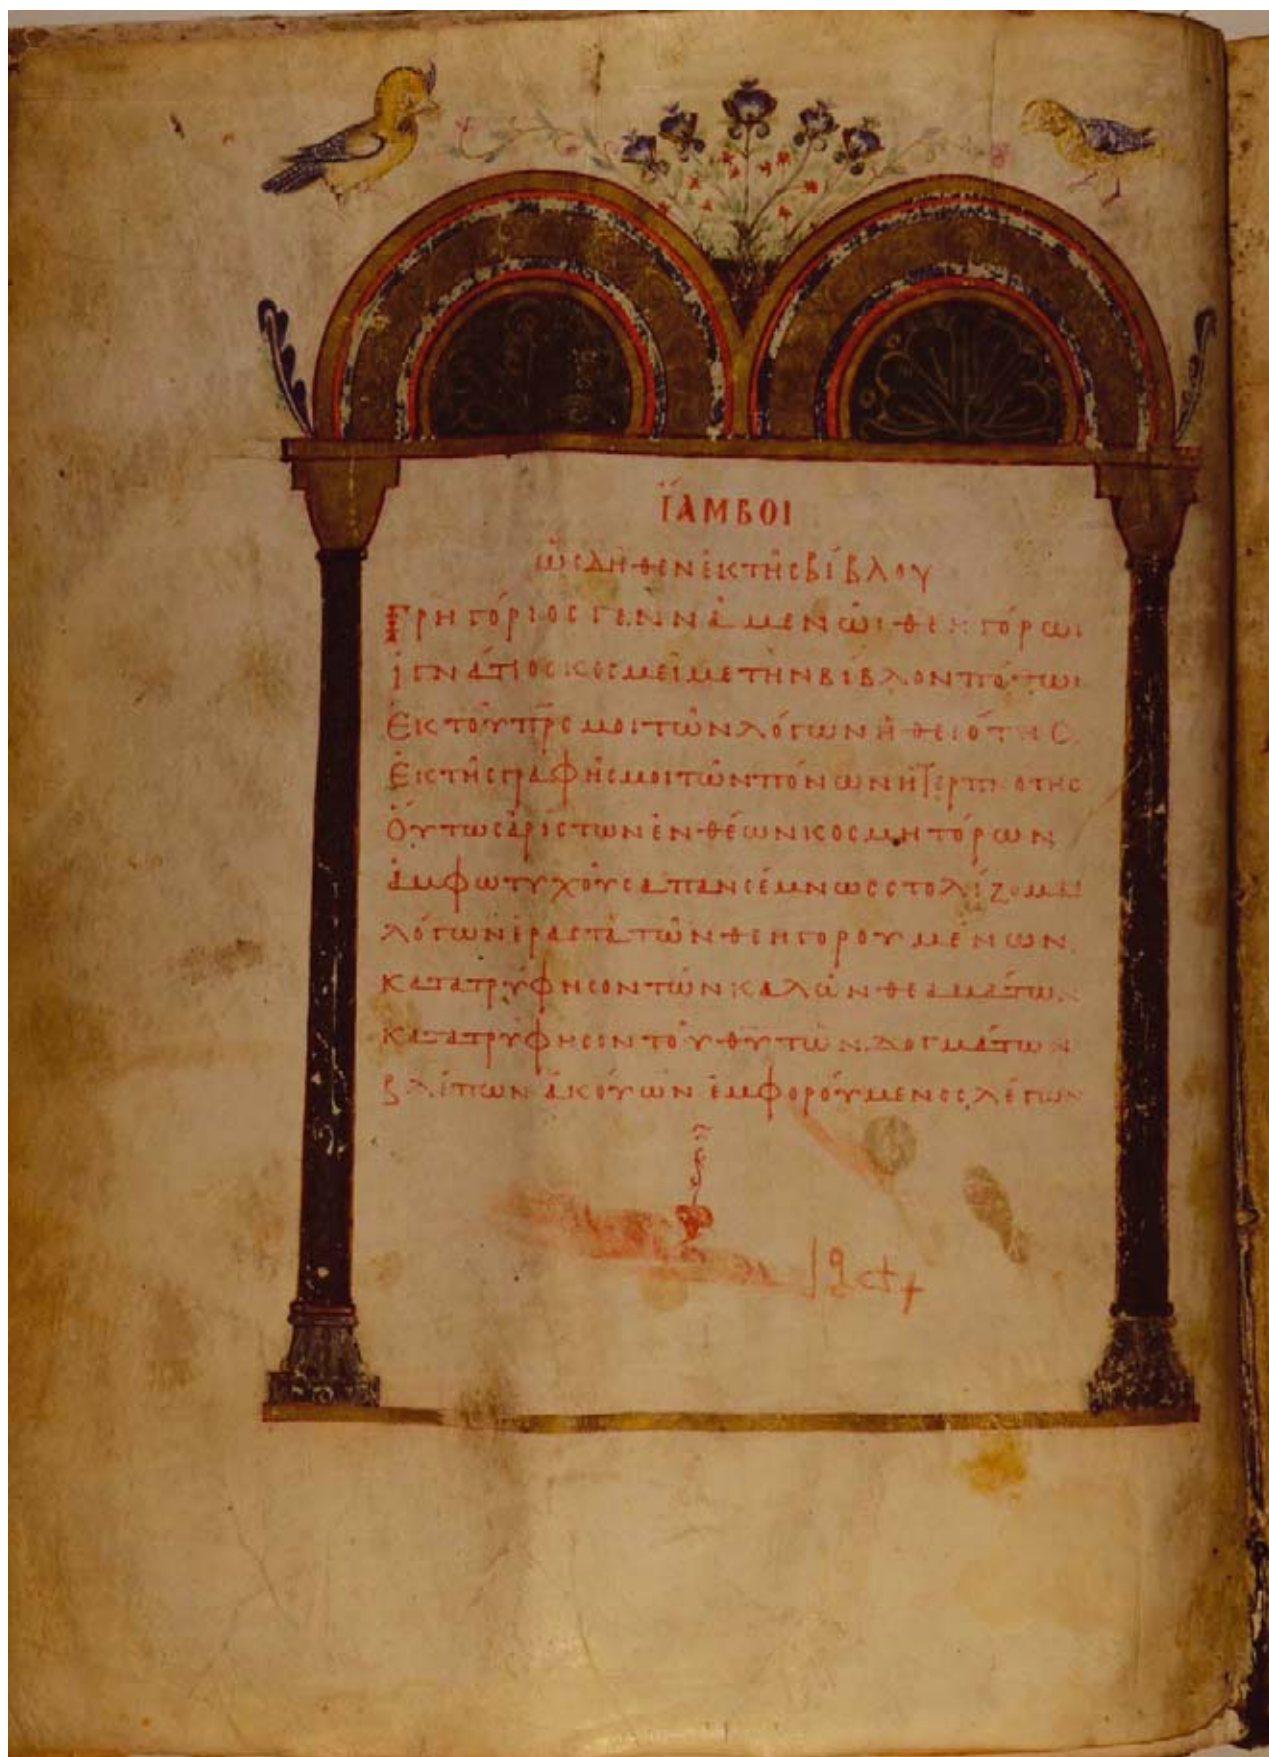 ἼΑΜΒΟΙ
ὡς δῆθεν ἐκ τῆς βίβλου
Γρηγόριος γεννᾷ μὲν ὧι θεηγόρωι
ἰγνάτιος κοσμεῖ με τὴν βίβλον πόθωι
Ἐκ τοῦ πρς μοι τῶν λόγων ἡ θειότης
Ἐκ τῆς γραφῆς μοι τῶν πόνων ἡ τερπνότης
Οὕτως ἀρίστων ἐνθέων κοσμητόρων
ἄμφω τυχοῦσα πανσέμνως στολίζομαι
λόγων ἐραστὰ τῶν θεηγορουμένων
κατατρύφησον τῶν καλῶν θεαμάτων
κατατρύφησον τοῦ θυ τῶν δογμάτων
βλέπων ἀκούων ἐμφορούμενος λέγων